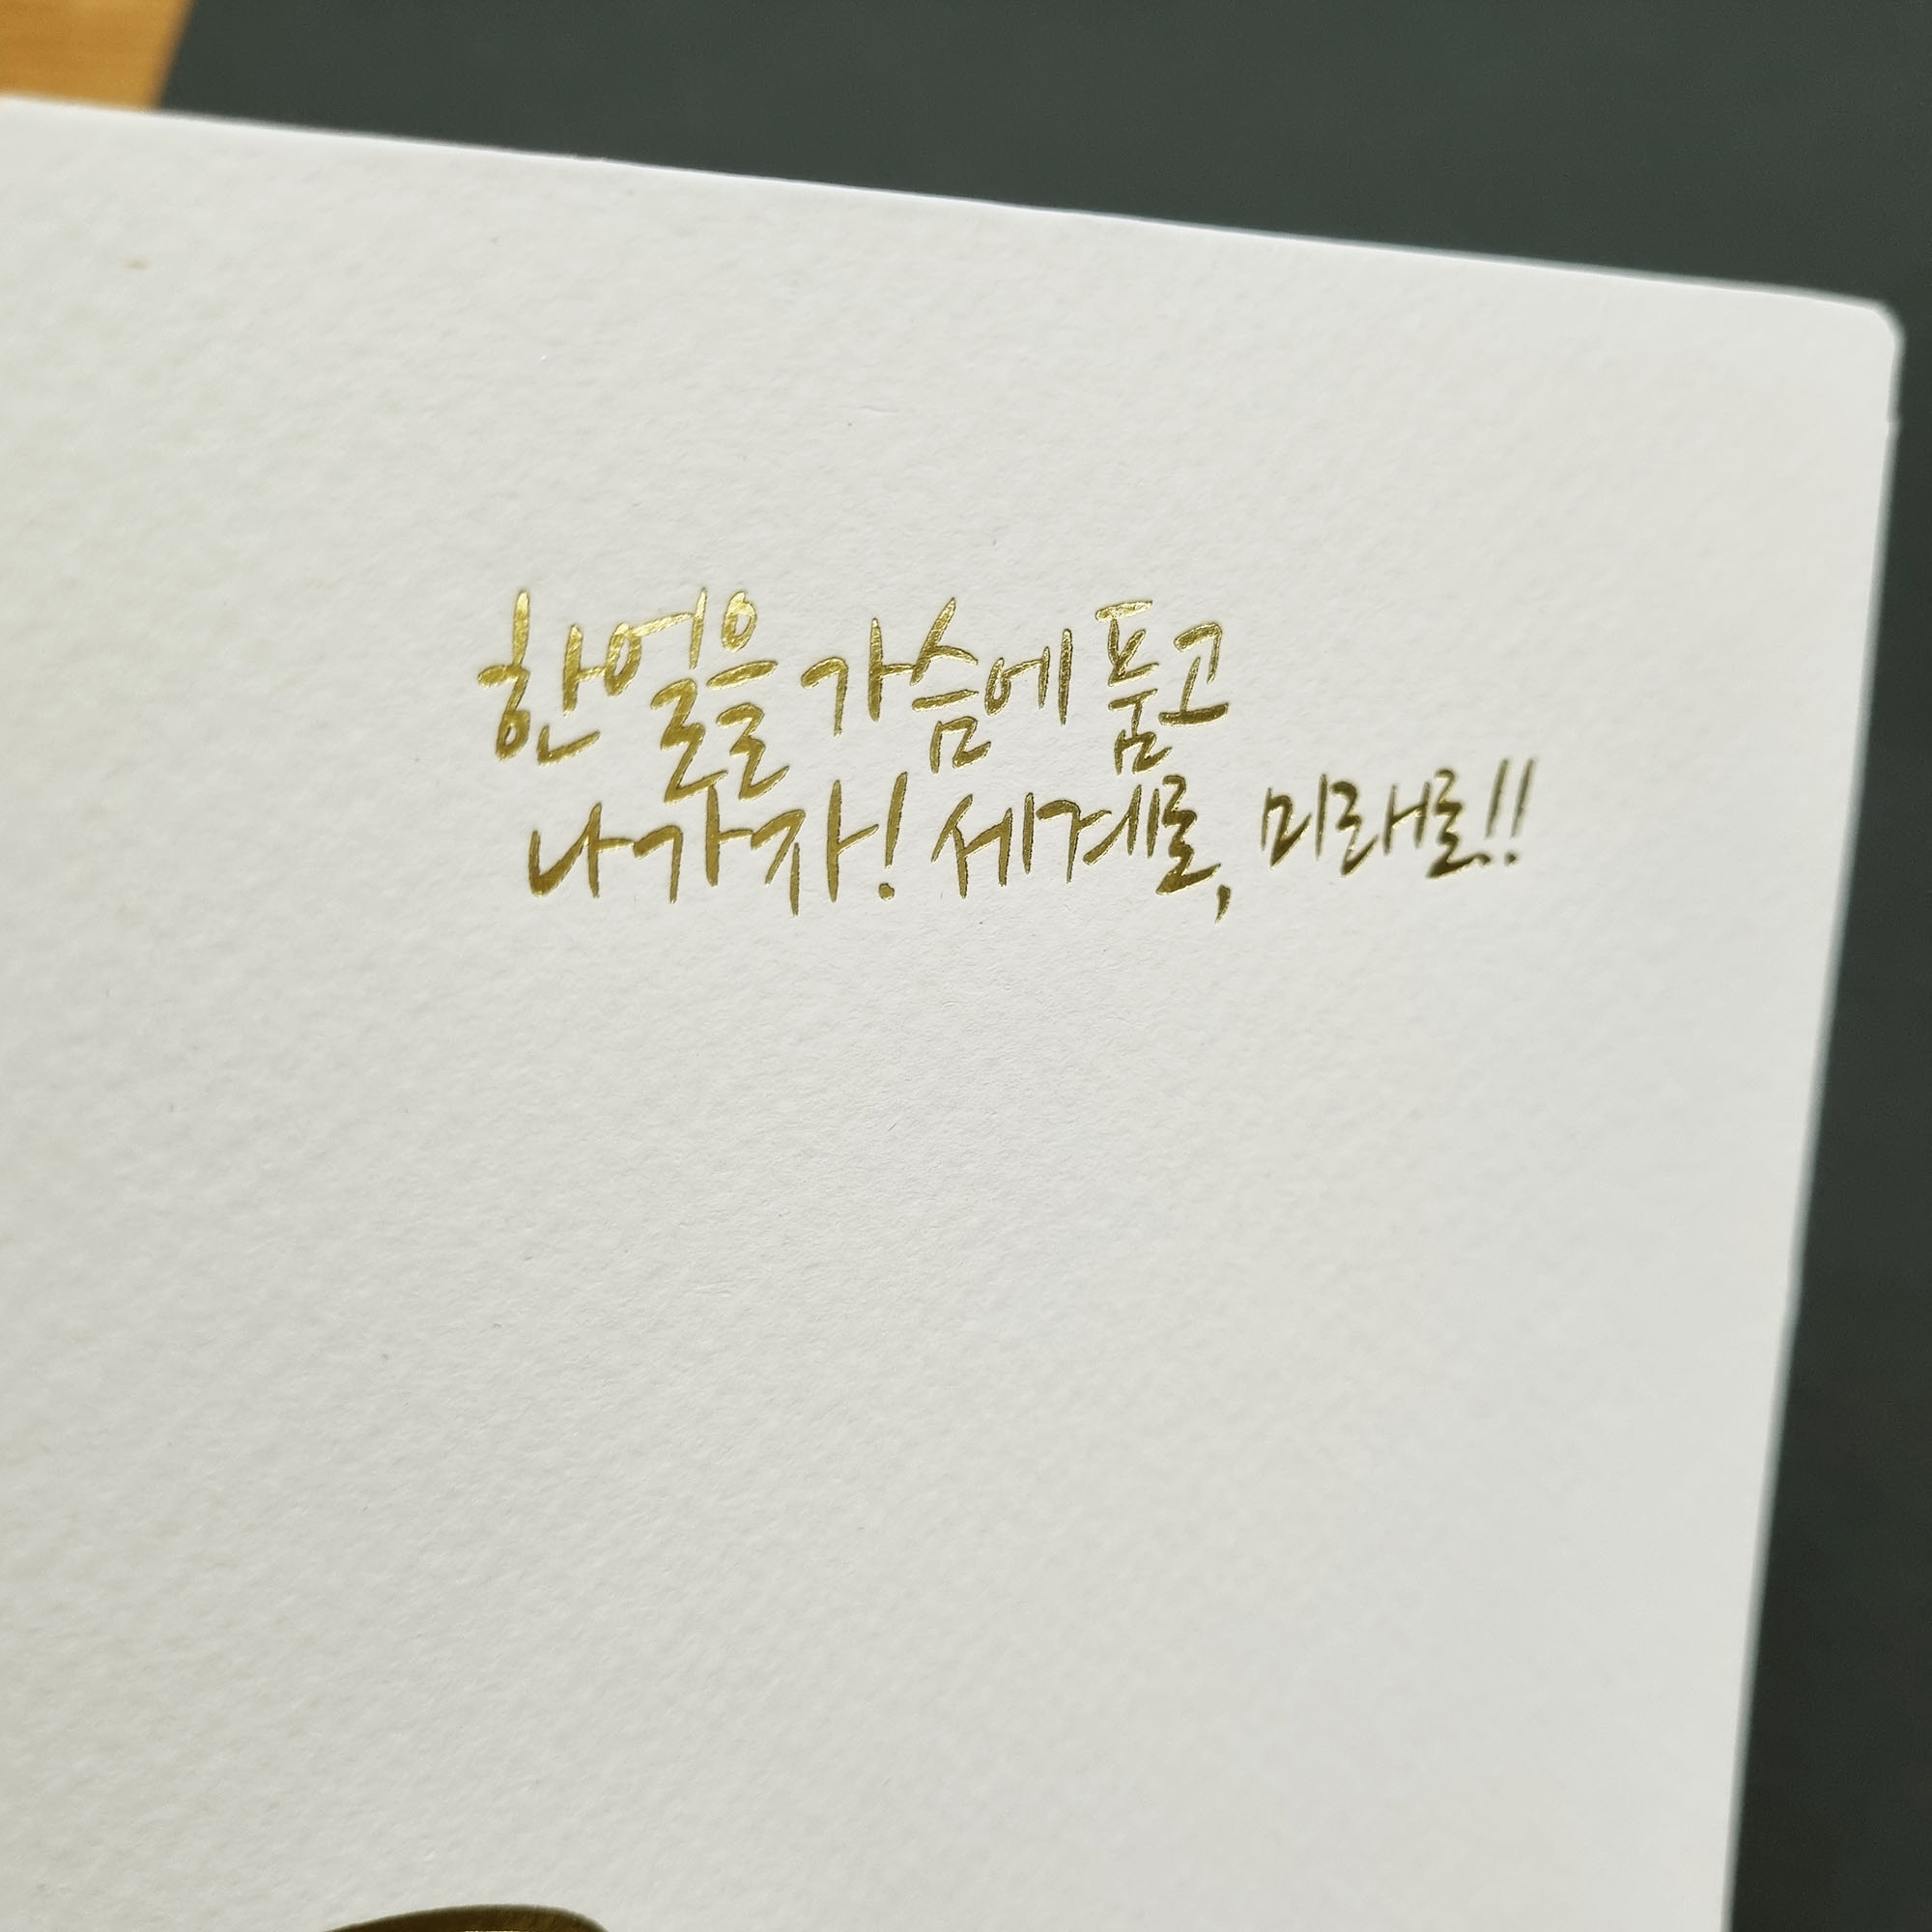 한얼을 가슴에 품고
나가자! 세계로, 미래로!!